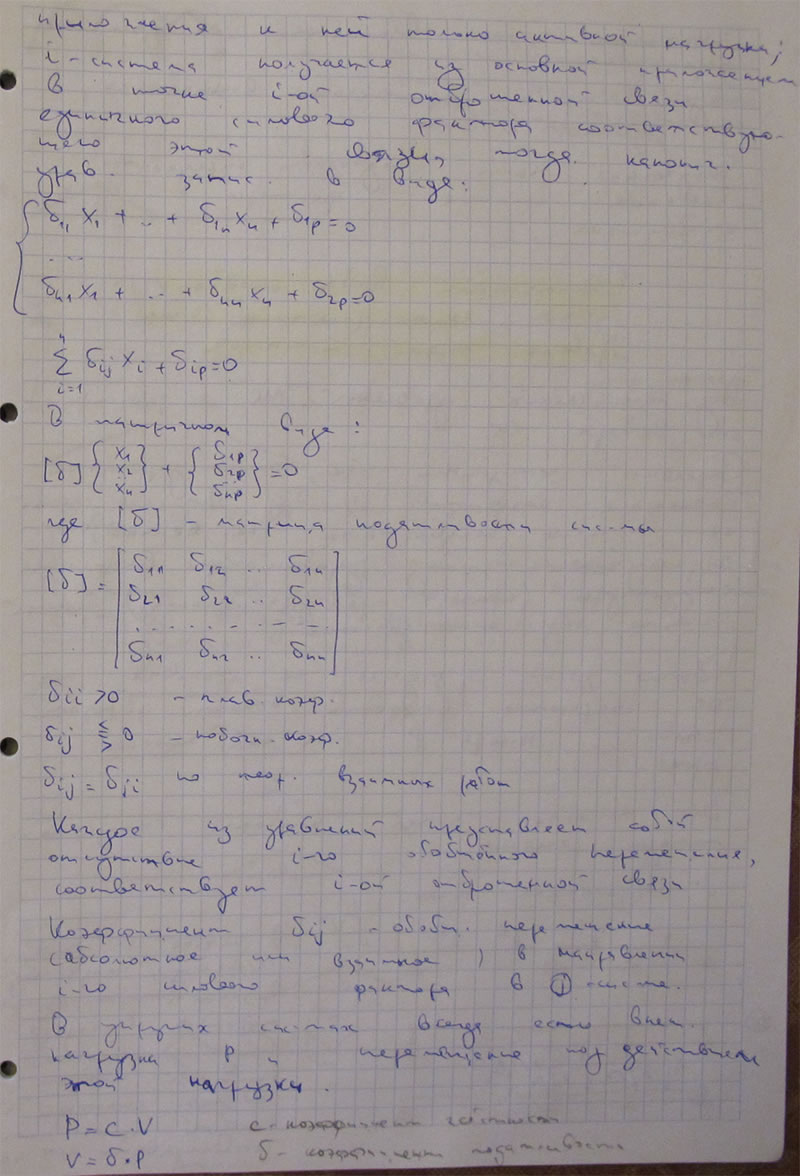 приложения к ней только активной нагрузки;
i-система получается из основной приложением
в точке i-ой отброшенной связи
единичного силового фактора соответствую-
щего этой связи, тогда канонич.
урав. запис. в виде:
δ₁₁ x₁ + .. + δ₁ₙ xₙ + δ₁p = 0
....
δₙ₁ x₁ + .. + δₙₙ xₙ + δ₂p = 0
n
∑ δij xi + δip = 0
i=1
В матричном виде:
[δ] {x₁ x₂ xₙ} + {δ₁p δ₂p δₙp} = 0
где [δ] - матрица податливости сис-мы
[δ] = [δ₁₁ δ₁₂ .. δ₁ₙ
δ₂₁ δ₂₂ .. δ₂ₙ
. . . . . . . .
δₙ₁ δₙ₂ .. δₙₙ]
δii > 0 - глав. коэф.
δij ⪋ 0 - побочн. коэф.
δij = δji по теор. взаимных работ
Каждое из уравнений представляет собой
отсутствие i-го обобщённого перемещения,
соответствует i-ой отброшенной связи
Коэффициент δij - обобщ. перемещение
(абсолютное или взаимное) в направлении
i-го силового фактора в j-систе.
В упругих сис-мах всегда есть внеш.
нагрузка P и перемещение под действием
этой нагрузки.
P = c · V c - коэффициент жёсткости
V = δ · P δ - коэффициент податливости